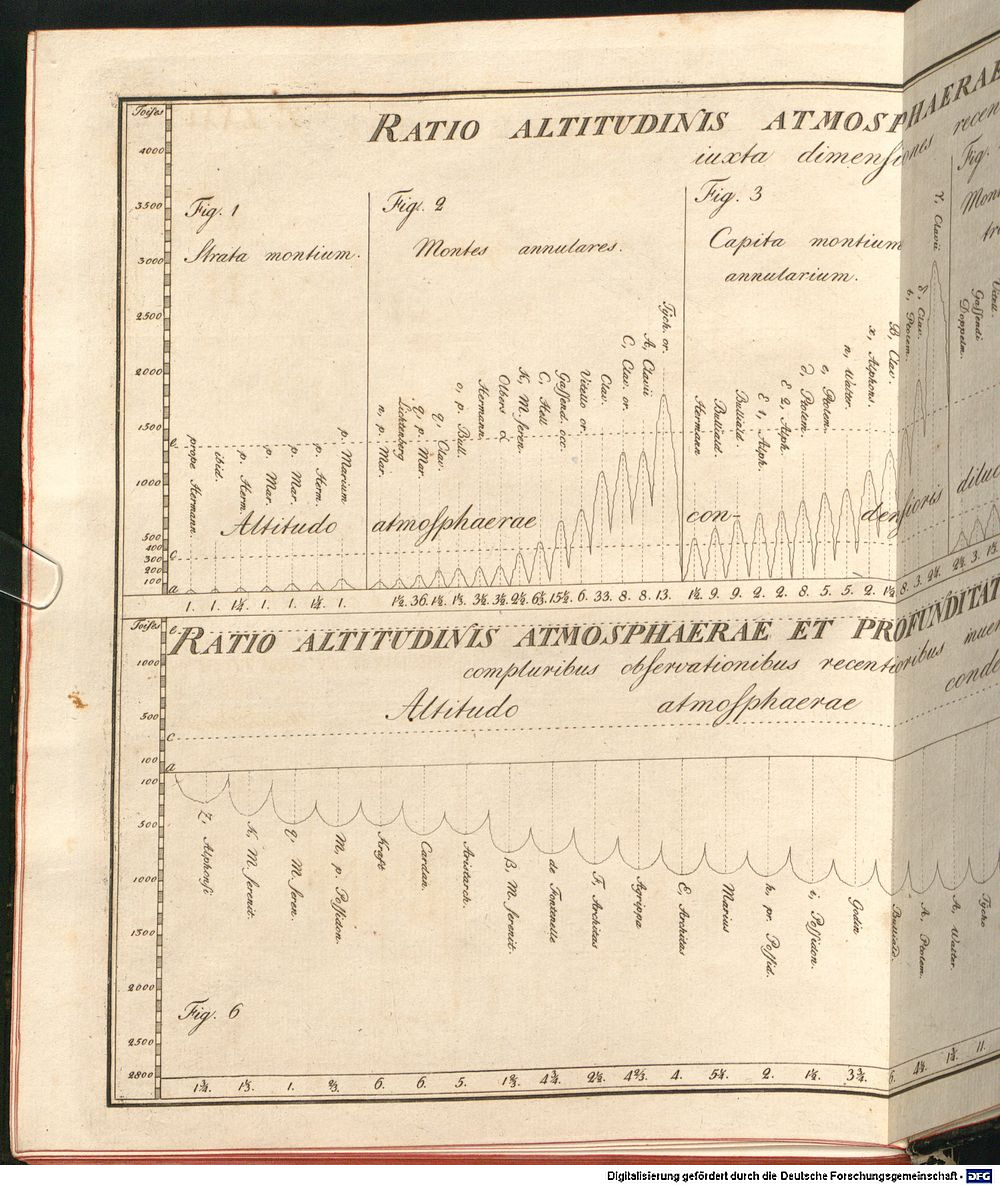 Toises
RATIO ALTITUDINIS ATMOSPHAERAE
iuxta dimensiones recen
4000
3500
3000
2500
2000
1500
1000
500
400
300
200
100
Fig. 1
Strata montium.
Fig. 2
Montes annulares.
Fig. 3
Capita montium
annularium.
Fig.
Mont
tra
e
c
a
prope Hermann.
ibid.
p. Herm.
p. Mar.
p. Mar.
p. Herm.
p. Marium
n, p. Mar.
Lichtenberg
q, p. Mar.
q, Clav.
o, p. Bull.
Hermann.
Olbers
K, M. seren.
C, Hell
Gassend. occ.
Vitello or.
Clav.
C, Clav. or.
A, Clavii
Tych. or.
Hermann
Bulliald.
Bulliald
E 1, Alph.
E 2, Alph.
Ptolem.
e, Ptolem.
n, Walter.
x, Alphons.
B, Clav.
t, Ptolem.
δ, Clav.
γ, Clavii
Doppelm.
Gassendi
Vitell.
Altitudo atmosphaerae con- densioris diluc
1. 1. 1¼. 1. 1. 1¼. 1. 1½. 36. 1½. 1⅓. 3½. 3½. 2½. 6⅔. 15½. 6. 33. 8. 8. 13. 1½. 9. 9. 2. 2. 8. 5. 5. 2. 1½ 8. 3. 2¼. 2½. 3. 1½
Toises
RATIO ALTITUDINIS ATMOSPHAERAE ET PROFUNDITAT
compluribus observationibus recentioribus inuen
Altitudo atmosphaerae conde
e
1000
500
c
100
a
100
500
1000
1300
2000
2500
2800
Z, Alphonsi
K, M. serenit.
V, M. seren.
M, p. Possidon.
Kraft
Cardan.
Aristarch.
B, M. serenit.
de Fontenelle
F, Architas
Agrippa
E, Architas
Marius
h, pr. Possid.
i, Possidon.
Godin
Bulliald.
A, Ptolem.
A, Walter.
Tycho
Fig. 6
1¾. 1⅓. 1. ⅔. 6. 6. 5. 1⅔. 4¾. 2½. 4⅔. 4. 5¼. 2. 1½. 3¾. 6. 4½. 1¾. 11.
Digitalisierung gefördert durch die Deutsche Forschungsgemeinschaft - DFG